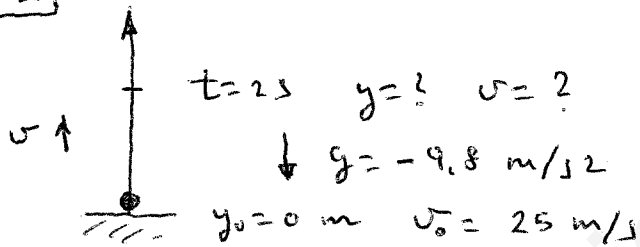 t = 2 s y = ? v = ?
v ↑
↓ g = - 9,8 m/s2
y₀ = 0 m v₀ = 25 m/s